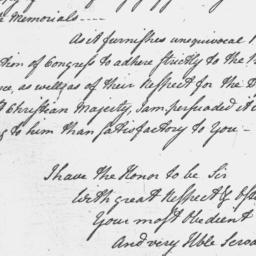 Memorials----
As it furnishes unequivocal
tion of Congress to adhere strictly to the
as well as of their Respect for the
Christian Majesty, I am persuaded it
to him than satisfactory to You—
I have the Honor to be Sir
With great Respect &
Your most Obedient
And very Hble